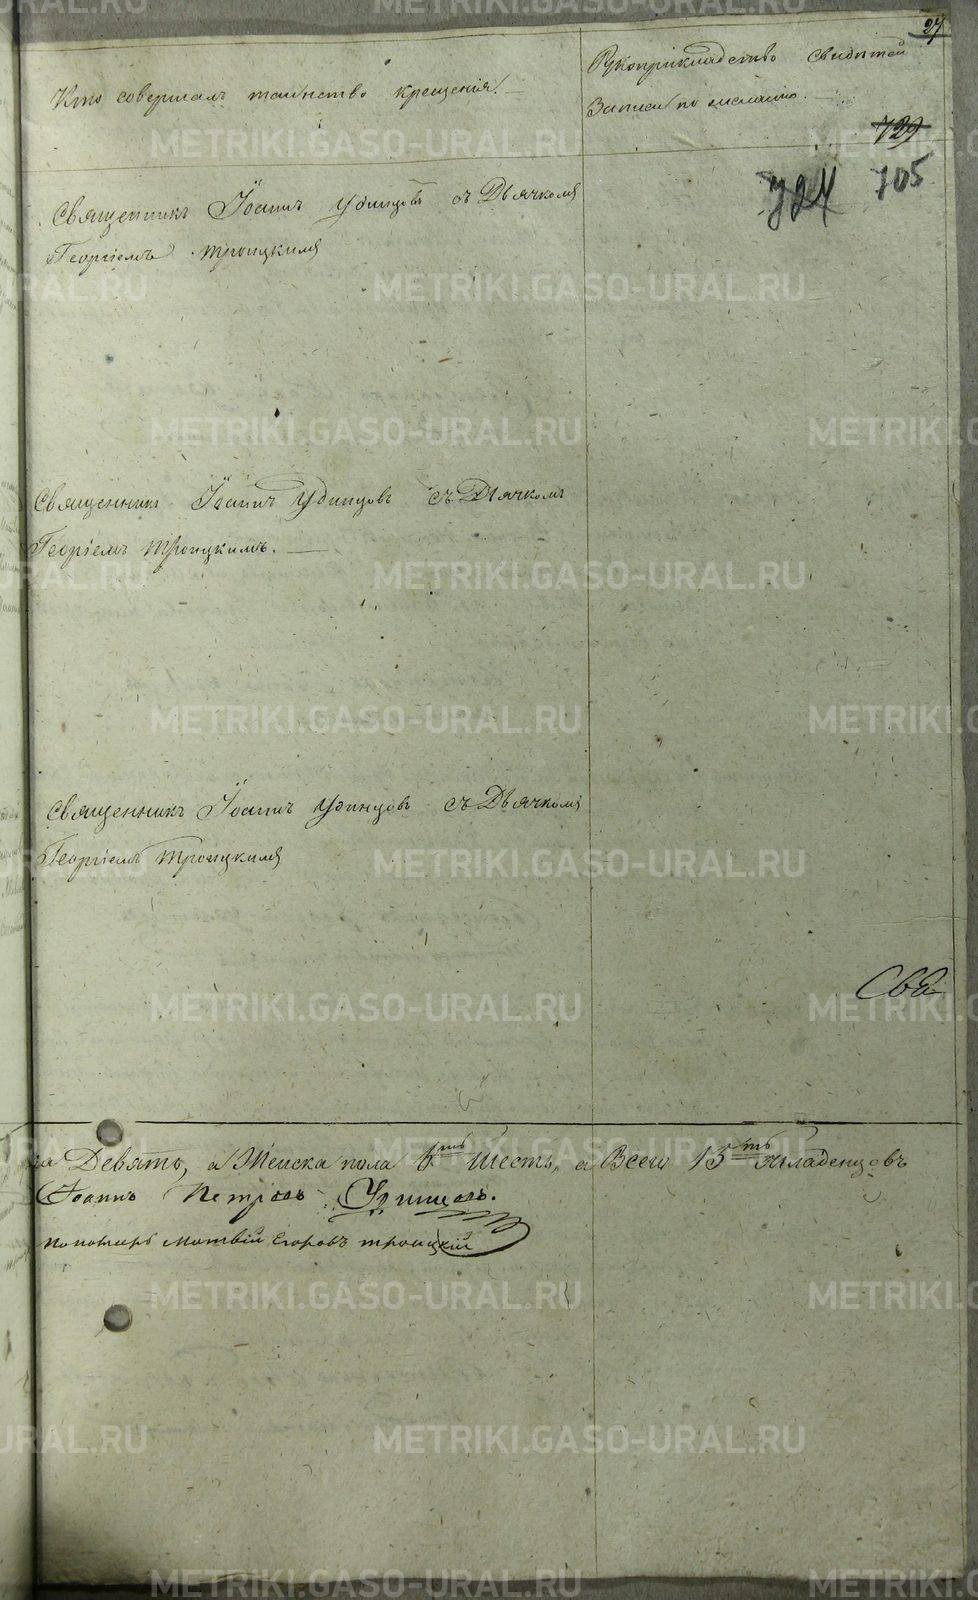 27
Кто совершалъ таинство крещенія.
Рукоприкладство свидѣтелей
Записи по желанію.
129
724 105
Священникъ Іоаннъ Удинцовъ съ Дьячкомъ
Георгіемъ Троицкимъ
Священникъ Іоаннъ Удинцовъ съ Дьячкомъ
Георгіемъ Троицкимъ.
Священникъ Іоаннъ Удинцовъ съ Дьячкомъ
Георгіемъ Троицкимъ
Девять, а Женска пола 6ть Шесть, а Всего 15ть младенцовъ
Іоаннъ Петровъ Удинцовъ.
Пономарь Матвій Егоровъ Троицкій
METRIKI.GASO-URAL.RU